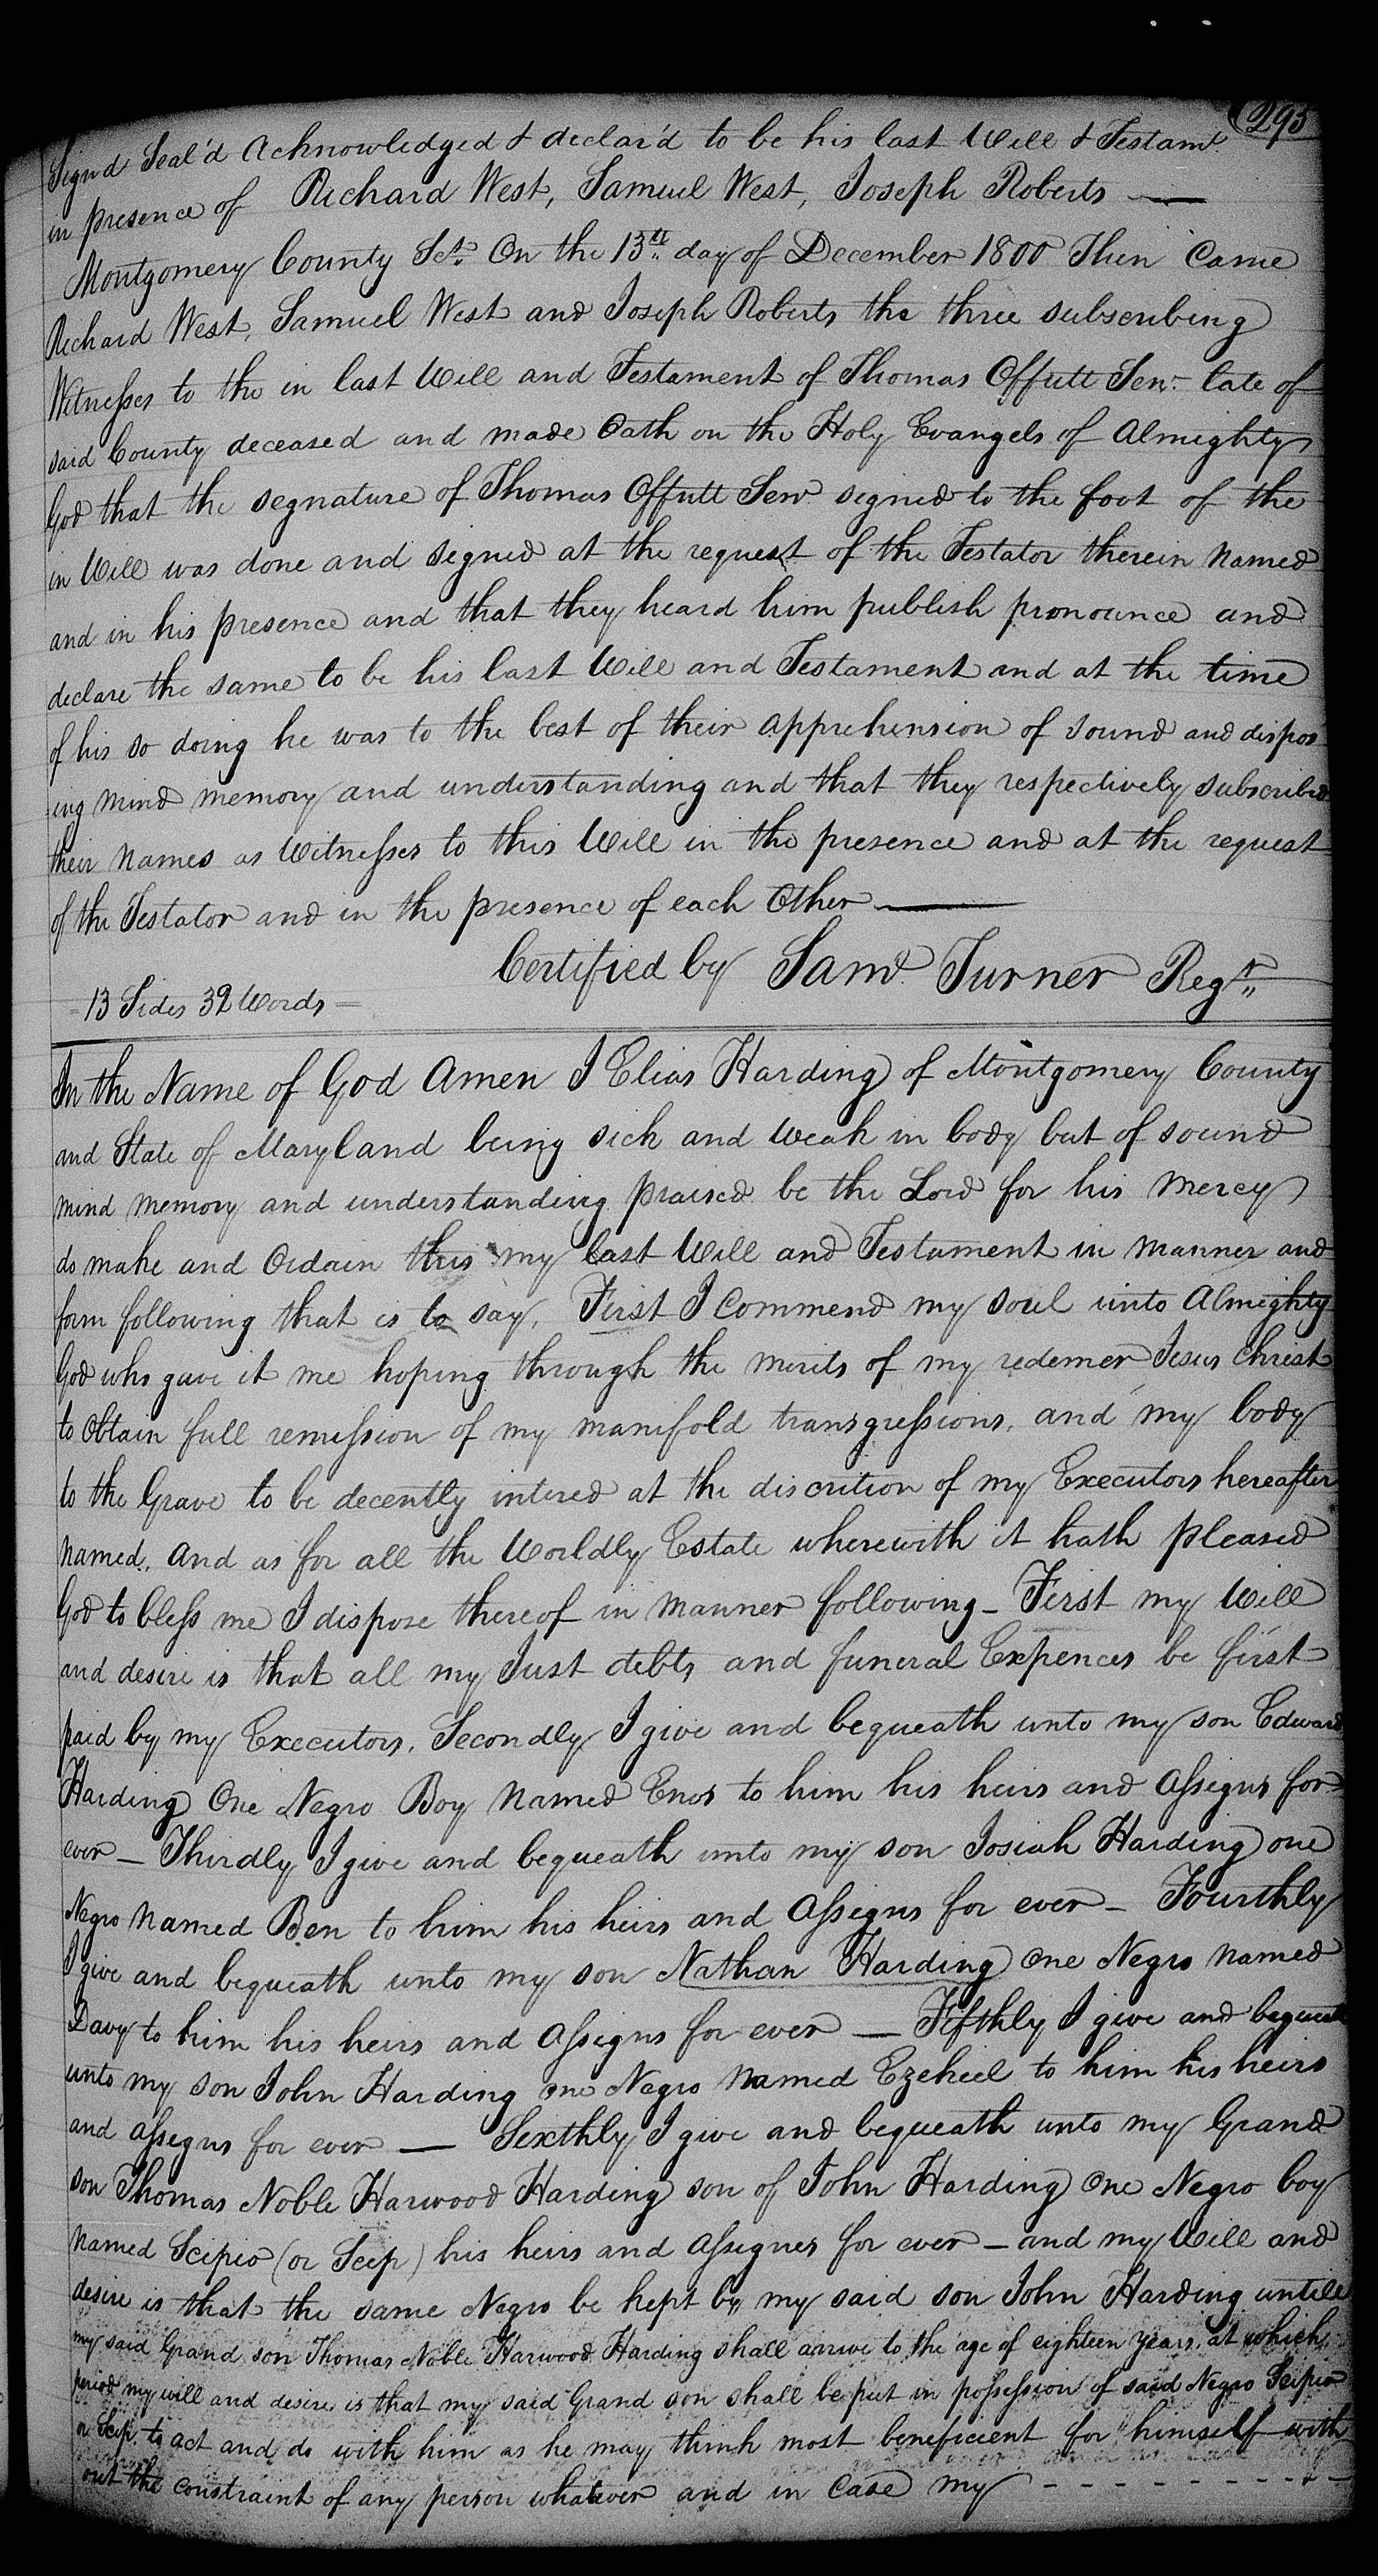 295
Signd Seal'd Acknowledged & declar'd to be his last Will & Testamt.
in presence of Richard West, Samuel West, Joseph Roberts —
Montgomery County Sct. On the 13th day of December 1800 Then Came
Richard West, Samuel West and Joseph Roberts the three subscribing
Witnesses to the in last Will and Testament of Thomas Offutt Senr. late of
said County deceased and made Oath on the Holy Evangels of Almighty
God that the segnature of Thomas Offutt Senr segned to the foot of the
in Will was done and signed at the request of the Testator therein named
and in his presence and that they heard him publish pronounce and
declare the same to be his last Will and Testament and at the time
of his so doing he was to the best of their apprehension of sound and dispos
-ing mind memory and understanding and that they respectively subscribed
their names as Witnesses to this Will in the presence and at the request
of the Testator and in the presence of each Other —
Certified by Saml. Turner Regtr.
= 13 Sides 32 Words =
In the Name of God Amen I Elias Harding of Montgomery County
and State of Maryland being sick and weak in body but of sound
mind memory and understanding praised be the Lord for his mercy
do make and Ordain this my last Will and Testament in manner and
form following that is to say. First I Commend my soul unto Almighty
God who gave it me hoping through the merits of my redemer Jesus Christ
to Obtain full remission of my manifold transgressions, and my body
to the Grave to be decently intered at the discrition of my Executors hereafter
named. And as for all the Worldly Estate wherewith it hath pleased
God to bless me I dispose thereof in manner following — First my Will
and desire is that all my Just debts and funeral Expences be first
paid by my Executors, Secondly I give and bequeath unto my son Edward
Harding One Negro Boy named Enos to him his heirs and Assigns for
ever — Thirdly I give and bequeath unto my son Josiah Harding one
Negro named Ben to him his heirs and Assigns for ever — Fourthly
I give and bequeath unto my son Nathan Harding One Negro named
Davy to him his heirs and Assigns for ever — Fifthly I give and bequeath
unto my son John Harding one Negro named Ezekeel to him his heirs
and assigns for ever — Sexthly I give and bequeath unto my Grand
son Thomas Noble Harwood Harding son of John Harding One Negro boy
named Scipio (or Scip) his heirs and Assignes for ever — and my Will and
desire is that the same Negro be kept by my said son John Harding untell
my said Grand son Thomas Noble Harwood Harding shall arrive to the age of eighteen years, at which
period my will and desire is that my said Grand son shall be put in possession of said Negro Scipio
or Scip. to act and do with him as he may think most beneficient for himself with
out the constraint of any person whatever and in Case my - - - - - - - - - -